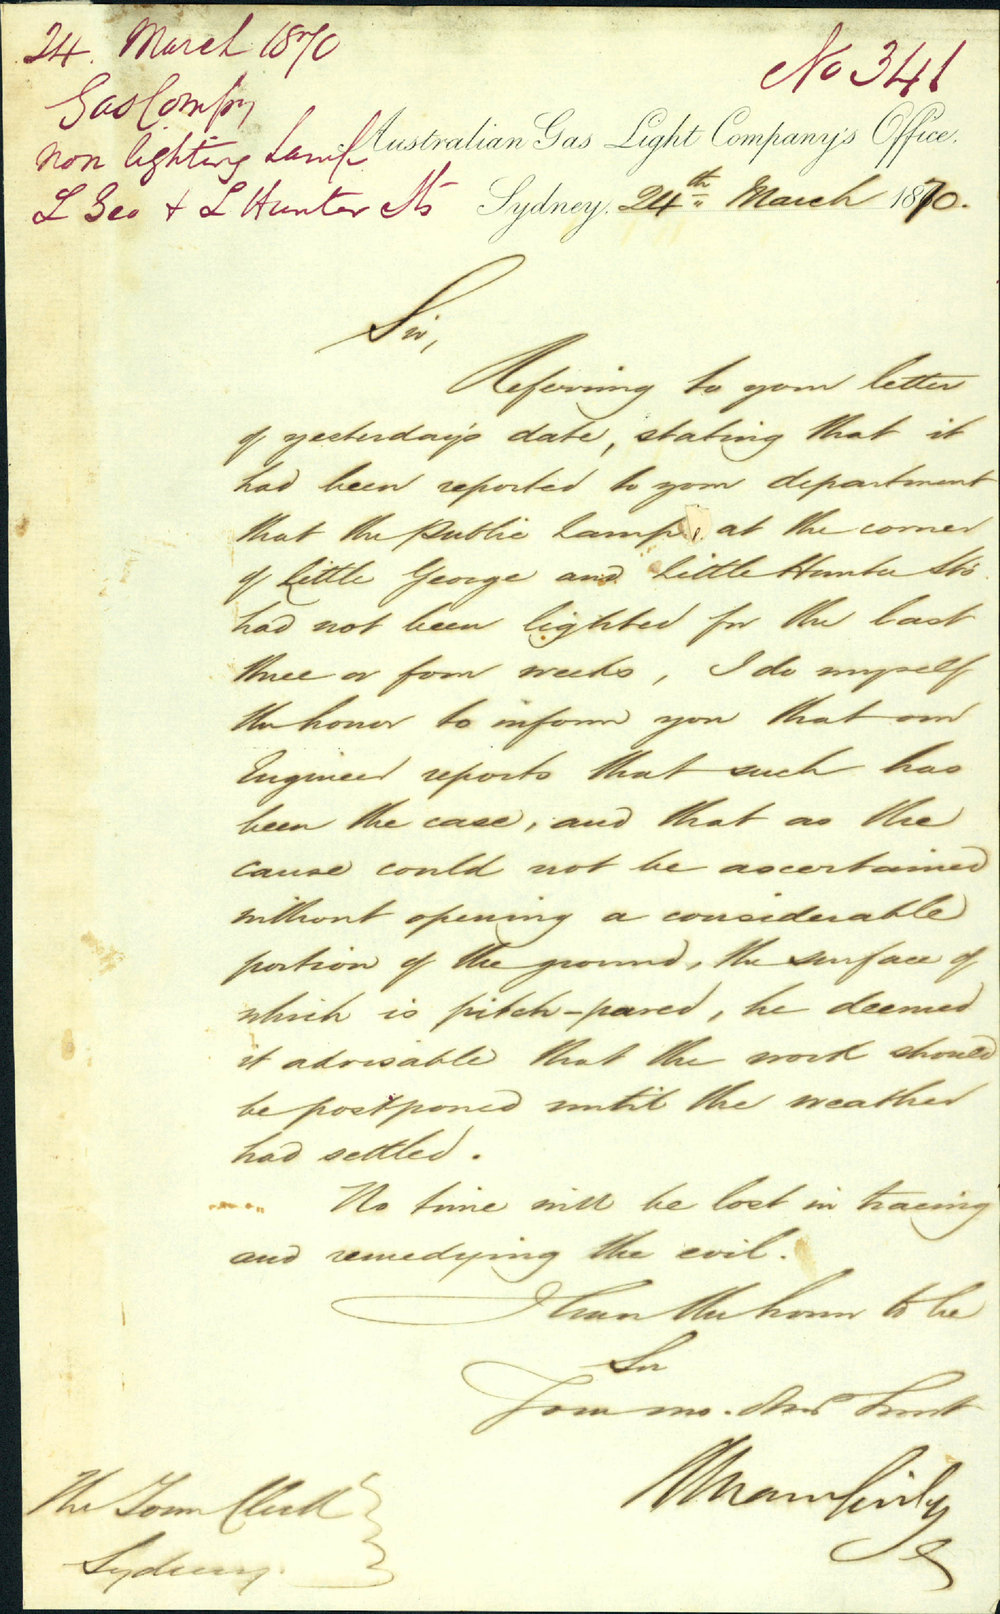 24. March 1870
Gas Compy
non lighting Lamp
L Geo & L Hunter Sts
No 341
Australian Gas Light Company's Office.
Sydney, 24th March 1870.
Sir,
Referring to your letter
of yesterday's date, stating that it
had been reported to your department
that the public Lamp, at the corner
of Little George and Little Hunter Sts.
had not been lighted for the last
three or four weeks, I do myself
the honor to inform you that our
Engineer reports that such has
been the case, and that as the
cause could not be ascertained
without opening a considerable
portion of the ground, the surface of
which is pitch-paved, he deemed
it advisable that the work should
be postponed until the weather
had settled.
No time will be lost in tracing
and remedying the evil.
I have the honor to be
Sir
Your mo. Obed Servt
The Town Clerk
Sydney.